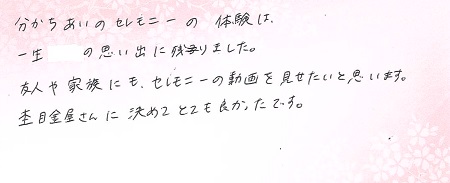 分かちあいのセレモニーの 体験は、
一生 の思い出に残りました。
友人や家族にも、セレモニーの動画を見せたいと思います。
杢目金屋さんに 決めてとても良かったです。